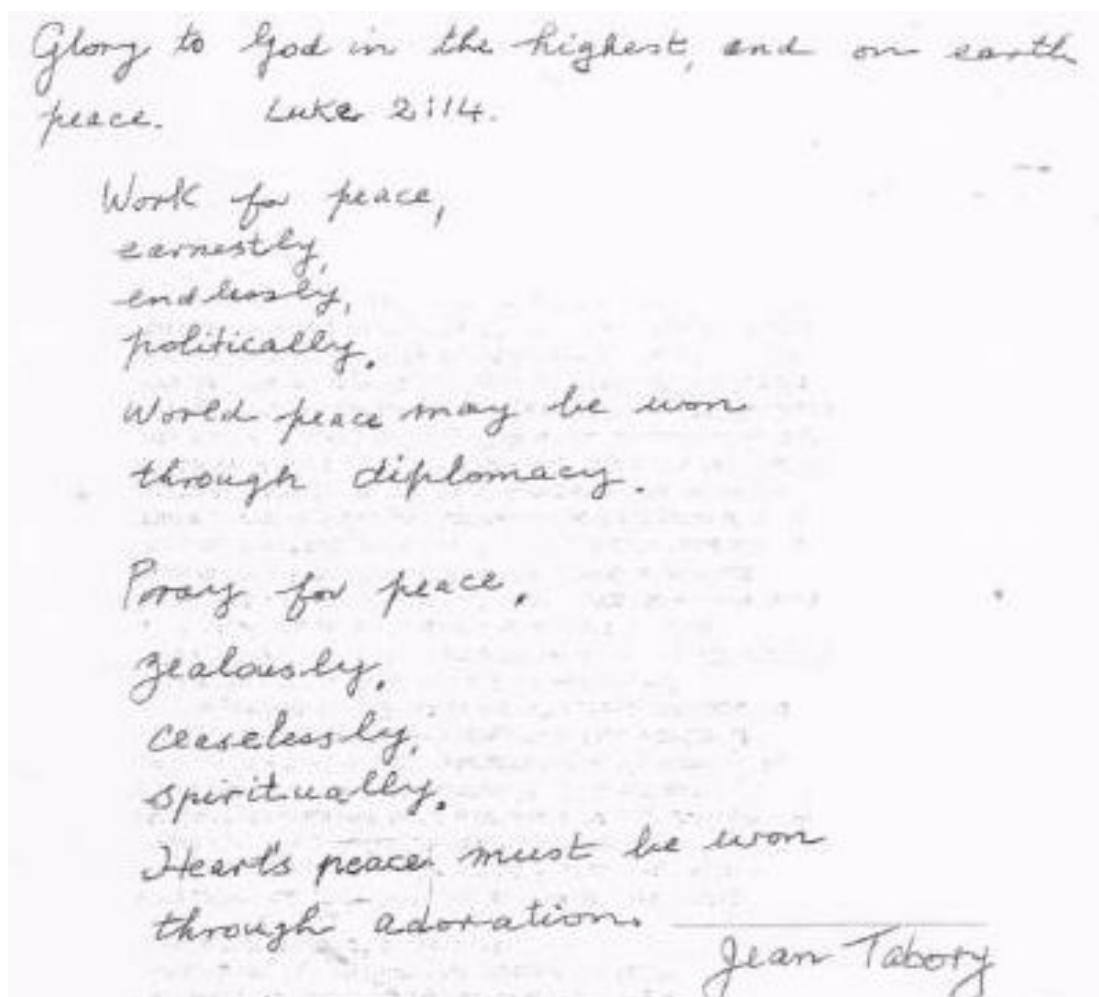 Glory to God in the highest, and on earth
peace. Luke 2:14.
Work for peace,
earnestly,
endlessly,
politically.
World peace may be won
through diplomacy.
Pray for peace,
zealously,
ceaselessly,
spiritually.
Heart's peace must be won
through adoration.
Jean Tabory